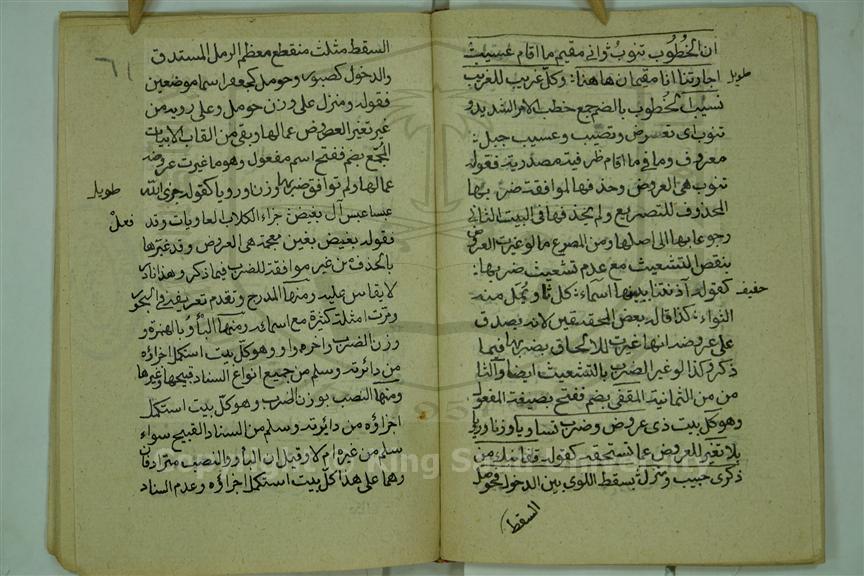 ان الخطوب تنوب واني مقيم ما اقام عسيب
اجارتنا انا مقيمان هاهنا : وكل غريب للغريب
طويل
نسيب الخطوب بالضم جمع خطب الامر الشديد و
تنوب اى تعرض وتصيب وعسيب جبل :
معروف وما في ما اقام ظرفية مصدرية فقوله
تنوب هى العروض وحذفها لموافقة ضربها
المحذوف للتصريع ولم يحذفها في البيت الثاني
رجوعا بها الى اصلها ومن المصرع ما لو غيرت العروض
بنقص التشعيث مع عدم تشعيث ضربها :
كقوله آذنتنا ببينها اسماء : كل ثاو يمل منه
خفيف
الثواء : كذا قاله بعض المحققين لانه يصدق
على عروضه انها غيرت للالحاق بضربها فيما
ذكر وكذا لو غير الضرب بالتشعيث ايضا والثا
من من الثمانية المقفى بضم ففتح بصيغة المفعول
وهو كل بيت ذى عروض وضرب تساويا وزنا ورويا
بلا تغير للعروض عما تستحقه كقوله قفا نبك من
ذكرى حبيب ومنزل بسقط اللوى بين الدخول فحومل
السقط
السقط مثلث منقطع معظم الرمل المستدق
والدخول كصبور وحومل كجعفر اسما موضعين
فقوله ومنزل على وزن حومل وعلى رويه من
غير تغير العروض عما لها وبقى من القاب الابيات
المجمع بضم ففتح اسم مفعول وهو ما غيرت عروضه
عما لها ولم توافق ضربها وزنا ورويا كقوله جزى الله
طويل
عبسا عبس آل بغيض : جزاء الكلاب العاويات وقد
فعل
فقوله بغيض بغين معجمة هى العروض وقد غيرها
بالحذف من غير موافقة للضرب فيما ذكر وهذا نادر
لا يقاس عليه ومنها المدرج وتقدم تعريفه في البحور
ومرت امثلة كثيرة مع اسمائه ومنها البأو بالهمزة و
وزن الضرب واخره واو وهو كل بيت استكمل اجزاؤه
من دائرته وسلم من جميع انواع السناد قبيحها وغيرها
ومنها النصب بوزن الضرب وهو كل بيت استكمل
اجزاؤه من دايرته وسلم من السناد القبيح سواء
سلم من غيره ام لا وقيل ان البأو والنصب مترادفان
وهما على هذا كل بيت استكمل اجزاؤه وعدم السناد